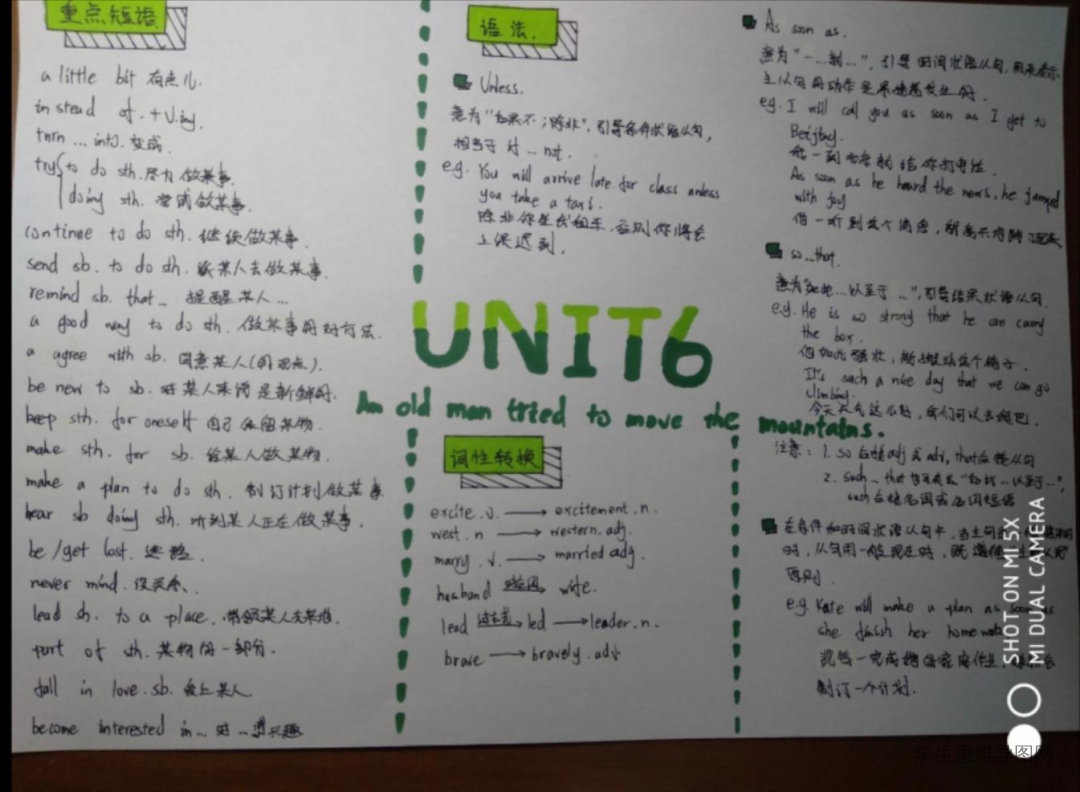 重点短语
a little bit 有点儿.
in stead of. + V.ing.
turn ... into. 变成.
try to do sth. 尽力做某事.
doing sth. 尝试做某事.
continue to do sth. 继续做某事.
send sb. to do sth. 派某人去做某事.
remind sb. that... 提醒某人...
a good way to do sth. 做某事的好方法.
a agree with sb. 同意某人(的观点).
be new to sb. 对某人来说是新鲜的.
keep sth. for oneself 自己保留某物.
make sth. for sb. 给某人做某物.
make a plan to do sth. 制订计划做某事
hear sb doing sth. 听到某人正在做某事.
be /get lost. 迷路.
never mind. 没关系.
lead sb. to a place. 带领某人去某地.
part of sth. 某物的一部分.
fall in love. sb. 爱上某人
become interested in... 对...感兴趣
语法.
Unless.
意为"如果不;除非", 引导条件状语从句,
相当于 if ... not.
e.g. You will arrive late for class unless
you take a taxi.
除非你坐出租车,否则你将会
上课迟到.
UNIT6
An old man tried to move the mountains.
词性转换
excite. v. → excitement. n.
west. n → western. adj.
marry. v. → married adj.
husband → wife.
lead 过去式→ led → leader. n.
brave → bravely. adv
As soon as.
意为"一...就...", 引导时间状语从句,用来表示
主从句的动作是紧接着发生的.
e.g. I will call you as soon as I get to
Beijing.
我一到北京就给你打电话.
As soon as he heard the news, he jumped
with joy
他一听到这个消息,
so...that.
意为"如此...以至于...", 引导结果状语从句.
e.g. He is so strong that he can carry
the box.
他如此强壮, 能搬动这个箱子.
It's such a nice day that we can go
climbing.
今天天气这么好, 我们可以去爬吧.
注意: 1. so 后接adj或adv, that后接从句
2. such... that 也可表示"如此...以至于...",
such后接名词或名词短语
在条件和时间状语从句中, 当主句
时, 从句用一般现在时, 既遵循
原则.
e.g. Kate will make a plan as soon as
she finish her homework
凯特一完成她的家庭作业,
制订一个计划.
SHOT ON MI 5X
MI DUAL CAMERA
学生思维导图网